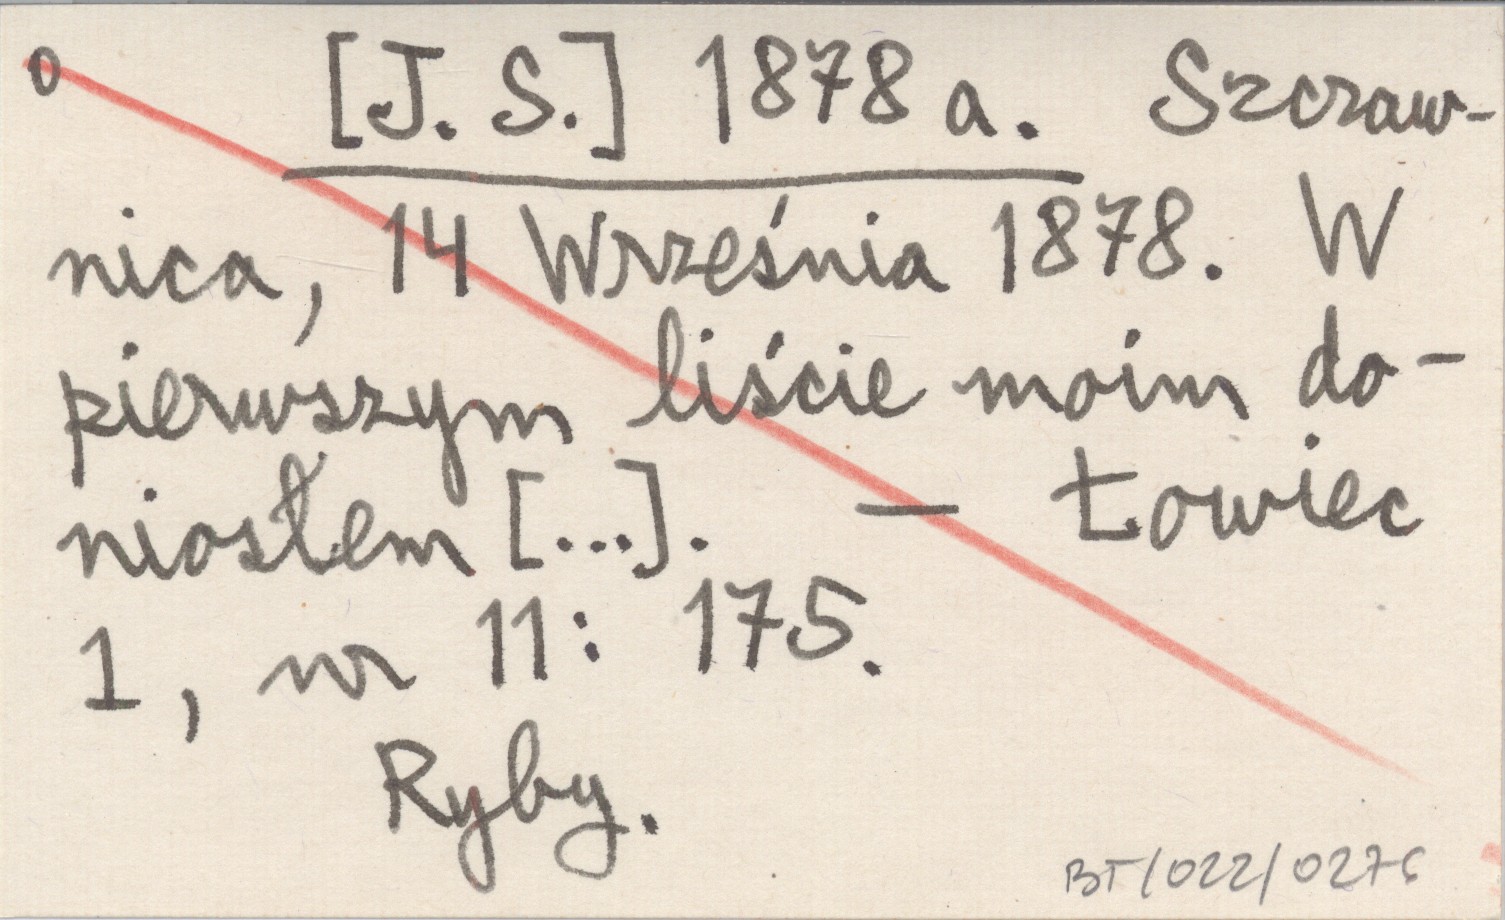 0 [J. S.] 1878 a. Szczaw-
nica, 14 Września 1878. W
pierwszym liście moim do-
niosłem [...]. — Łowiec
1, nr 11: 175.
Ryby.
BT/022/0276